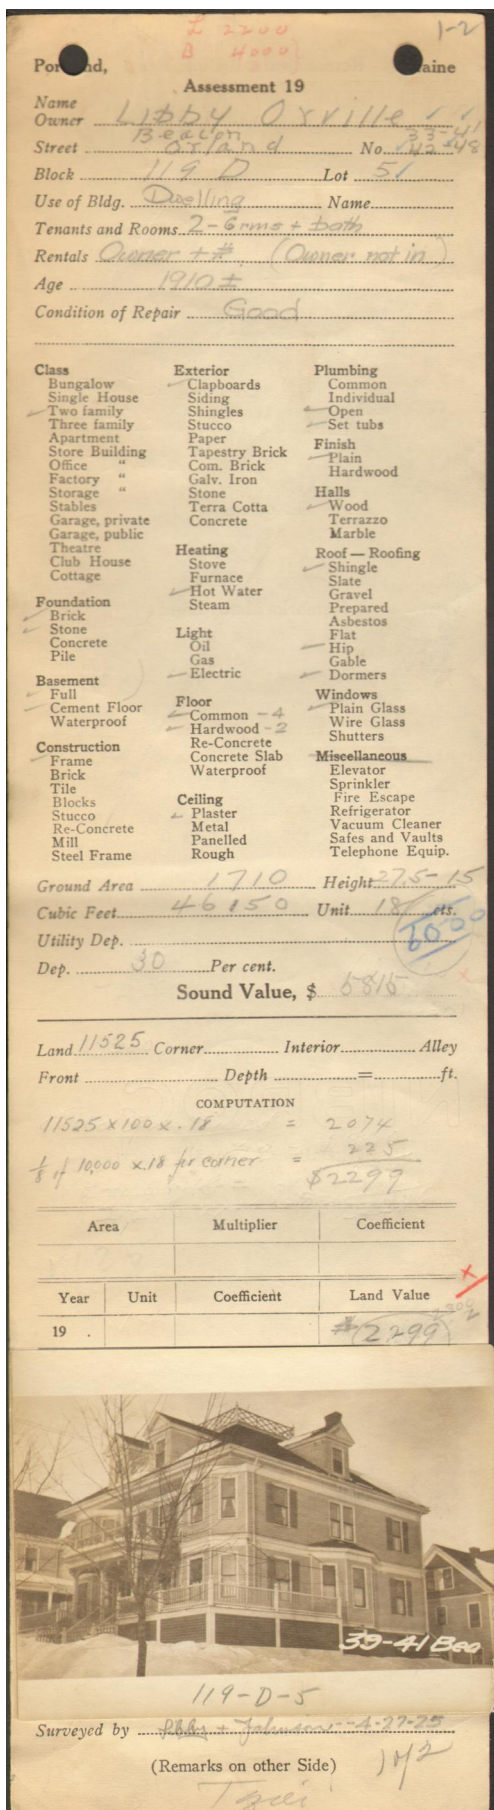 L 2200
B 4000
1-2
Portland, Maine
Assessment 19
Name
Owner Libby Orville
Beacon 33-41
Street Orland No. 42-48
Block 119 D Lot 5
Use of Bldg. Dwelling Name
Tenants and Rooms 2-6 rms + bath
Rentals Owner + #. (Owner not in)
Age 1910±
Condition of Repair Good
Class
Bungalow
Single House
Two family
Three family
Apartment
Store Building
Office "
Factory "
Storage "
Stables
Garage, private
Garage, public
Theatre
Club House
Cottage
Foundation
Brick
Stone
Concrete
Pile
Basement
Full
Cement Floor
Waterproof
Construction
Frame
Brick
Tile
Blocks
Stucco
Re-Concrete
Mill
Steel Frame
Exterior
Clapboards
Siding
Shingles
Stucco
Paper
Tapestry Brick
Com. Brick
Galv. Iron
Stone
Terra Cotta
Concrete
Heating
Stove
Furnace
Hot Water
Steam
Light
Oil
Gas
Electric
Floor
Common - 4
Hardwood - 2
Re-Concrete
Concrete Slab
Waterproof
Ceiling
Plaster
Metal
Panelled
Rough
Plumbing
Common
Individual
Open
Set tubs
Finish
Plain
Hardwood
Halls
Wood
Terrazzo
Marble
Roof — Roofing
Shingle
Slate
Gravel
Prepared
Asbestos
Flat
Hip
Gable
Dormers
Windows
Plain Glass
Wire Glass
Shutters
Miscellaneous
Elevator
Sprinkler
Fire Escape
Refrigerator
Vacuum Cleaner
Safes and Vaults
Telephone Equip.
Ground Area 1710 Height 27.5-15
Cubic Feet 46150 Unit 18 cts.
Utility Dep.
Dep. 30 Per cent.
Sound Value, $ 5815
Land 11525 Corner Interior Alley
Front Depth = ft.
COMPUTATION
11525 x 100 x .18 = 2074
1/8 of 10,000 x .18 for corner = 225
$2299
Area Multiplier Coefficient
Year Unit Coefficient Land Value
19 . $2299
39-41 Bea
119-D-5
Surveyed by Johnson - 4-27-25
(Remarks on other Side) 1 of 2